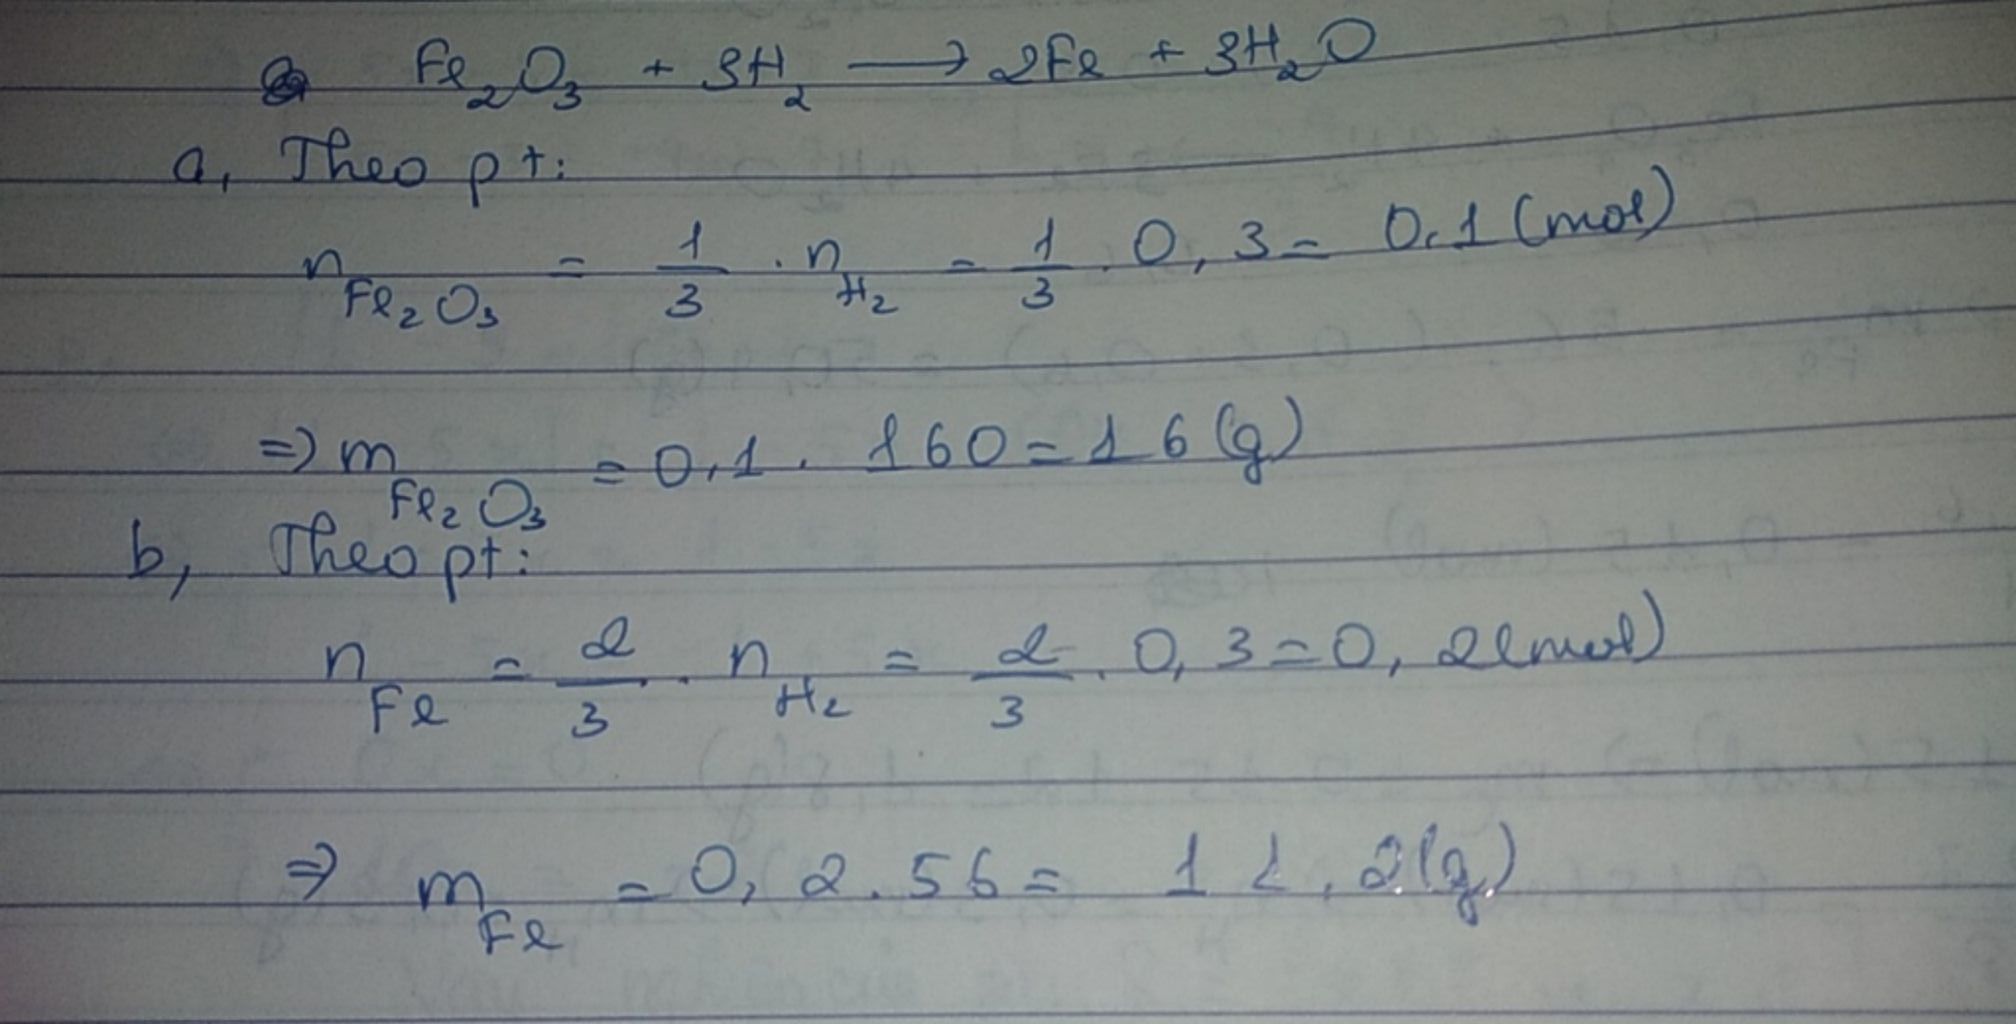 Fe₂O₃ + 3H₂ → 2Fe + 3H₂O
a, Theo pt:
n Fe₂O₃ = 1/3 . n H₂ = 1/3 . 0,3 = 0,1 (mol)
=> m Fe₂O₃ = 0,1 . 160 = 16 (g)
b, Theo pt:
n Fe = 2/3 . n H₂ = 2/3 . 0,3 = 0,2 (mol)
=> m Fe = 0,2 . 56 = 11,2 (g)